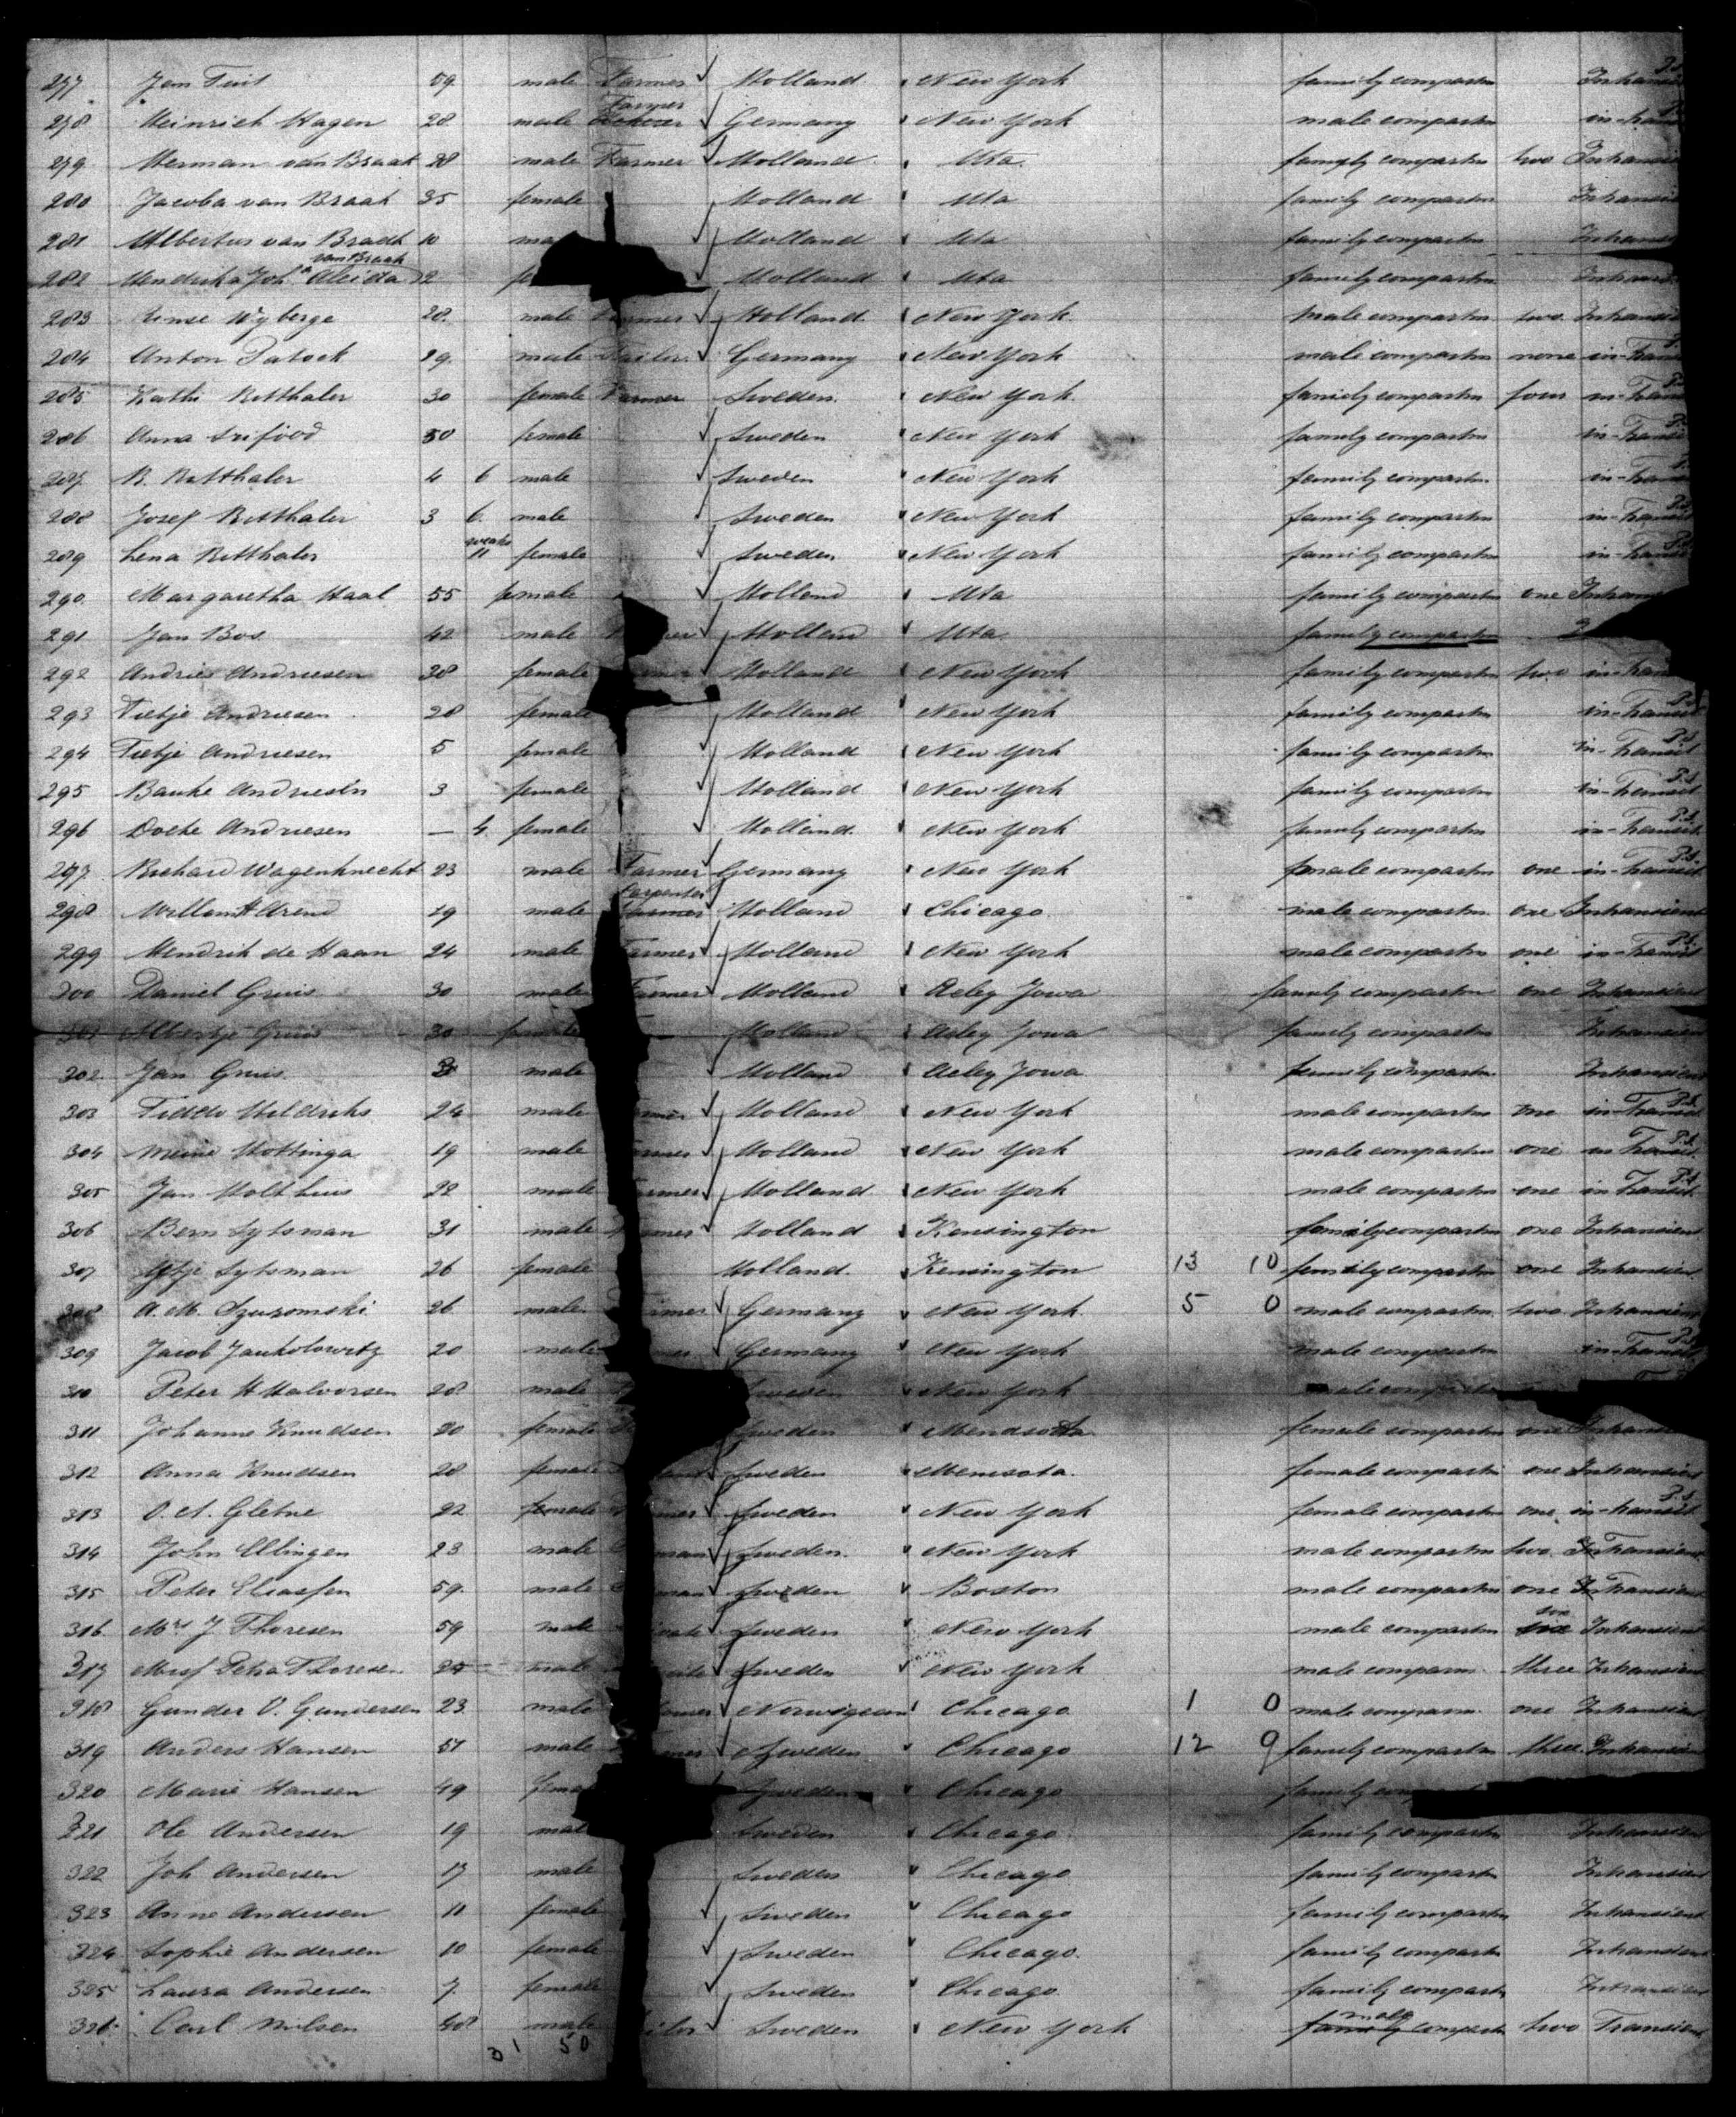 277 Jan Tuit 59 male Farmer Holland New York family compartm
278 Heinrich Hagen 28 male Farmer Germany New York male compartm in-trans
279 Herman van Braak 28 male Farmer Holland Uta family compartm two Intransi
280 Jacoba van Braak 35 female Holland Uta family compartm Intransi
281 Albertus van Braak 10 ma Holland Uta family compartm
van Braak
282 Hendrika Joh. Aleida 2 Holland Uta family compartm
283 28 male Farmer Holland New York male compartm two Intransi
284 Anton Patock 29 male Tailor Germany New York male compartm none in-Trans
285 Kathi Retthaler 30 female Farmer Sweden New York family compartm four in-Trans
286 Anna 50 female Sweden New York family compartm in-Transi
287 R. Retthaler 4 6 male Sweden New York family compartm in-Trans
288 Josef Retthaler 3 6 male Sweden New York family compartm in-Transit
weeks
289 Lena Retthaler 11 female Sweden New York family compartm in-transi
290 Margaretha Haal 55 female Holland Uta family compartm one Intrans
291 Jan Bos 42 male Holland Uta family compartm
292 Andries Andriesen 28 female Holland New York family compartm two in-tran
293 Tietje Andriesen 28 female Holland New York family compartm in-Transit
294 Tietje Andriesen 5 female Holland New York family compartm in-Transit
295 Bauke Andriesen 3 female Holland New York family compartm in-Transit
296 Doeke Andriesen — 4 female Holland New York family compartm in-Transit
297 Richard Wagenknecht 23 male Farmer Germany New York male compartm one in-Transit
Carpenter
298 Willem H Arend 19 male Farmer Holland Chicago male compartm one Intransient
299 Hendrik de Haan 24 male Farmer Holland New York male compartm one in-Transit
300 Daniel Gruis 30 male Farmer Holland Acley Jowa family compartm one Intransient
301 Albertje Gruis 30 female Holland Acley Jowa family compartm Intransient
302 Jan Gruis 3 male Holland Acley Jowa family compartm Intransient
303 Hildriks 24 male Holland New York male compartm one in-Transit
304 Meine Hottinga 19 male Holland New York male compartm one in Transit
305 Jan Holthuis 22 male Holland New York male compartm one in Transit
306 Bern Sytsman 31 male Holland Kensington family compartm one Intransient
307 Sytsman 26 female Holland Kensington 13 10 family compartm one Intransient
308 A. M. 26 male Germany New York 5 0 male compartm two Intransient
309 Jacob Jankolowitz 20 male Germany New York male compartm in-Transit
310 Peter H Halvorsen 28 male Sweden New York male compartm
311 Johanne Knudsen 20 female Sweden female compartm one Intransi
312 Anna Knudsen 28 female Sweden Menisota female compartm one Intransient
313 O. A. Gletne 22 female Sweden New York female compartm one in-transit
314 John Ellingen 23 male Sweden New York male compartm two InTransient
315 Peter Eliassen 59 male Sweden Boston male compartm one InTransient
316 Mrs J Thoresen 59 male Sweden New York male compartm six Intransient
317 Miss Petra Thoresen 24 male Sweden New York male comparm three Intransient
318 Gunder O. Gundersen 23 male Norwigean Chicago 1 0 male comparm one Intransient
319 Anders Hansen 51 male Sweden Chicago 12 9 family compartm three Intransient
320 Marie Hansen 49 fema Sweden Chicago family comp
321 Ole Andersen 19 mal Sweden Chicago family compartm Intransient
322 Joh Andersen 17 male Sweden Chicago family compartm Intransient
323 Anne Andersen 11 female Sweden Chicago family compartm Intransient
324 Sophie Andersen 10 female Sweden Chicago family compartm Intransient
325 Laura Andersen 7 female Sweden Chicago family compartm Intransient
male
326 Carl Nilsen 48 male Sweden New York family compartm two Transient
31 50